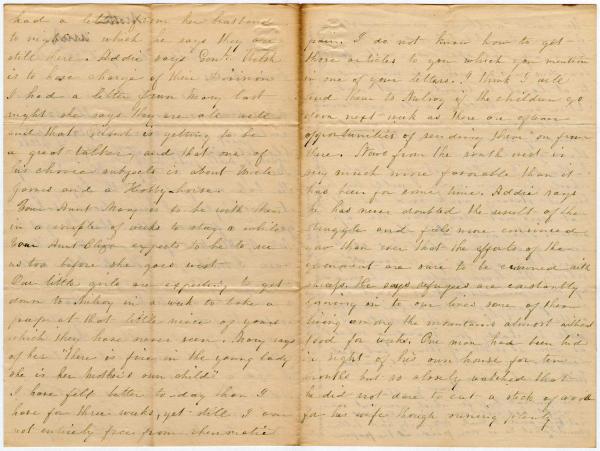 had a letter from her husband
to night in which he says they are
still here. Addie says Genl. Welsh
is to have charge of their Division
I had a letter from Mary last
night she says they are all well
and that is getting to be
a great talker, and that one of
his choice subjects is about Uncle
James and a Hobby-horse.
Your Aunt Mary is to be with them
in a couple of weeks to stay a while
Your Aunt Eliza expects to be to see
us too before she goes west.
Our little girls are expecting to get
down to Milroy in a week to take a
peep at that little niece of yours
which they have never seen. Mary says
of her "There is fire in the young lady
she is her Mother's own child"
I have felt better to-day than I
have for three weeks, yet still I am
not entirely free from rheumatic
pain. I do not know how to get
those articles to you which you mention
in one of your letters. I think I will
send them to Milroy if the children go
down next week as there are often
opportunities of sending them on from
there. News from the south west is
very much more favorable than it
has been for some time. Addie says
he has never doubted the result of the
struggle and feels more convinced
now than ever that the efforts of the
government are sure to be crowned with
success. He says refugees are constantly
coming in to our lines some of them
living among the mountains almost without
food for weeks. One man had been hid
in sight of his own house for ten
months but so closely watched that
he did not dare to cut a stick of wood
for his wife though owning plenty